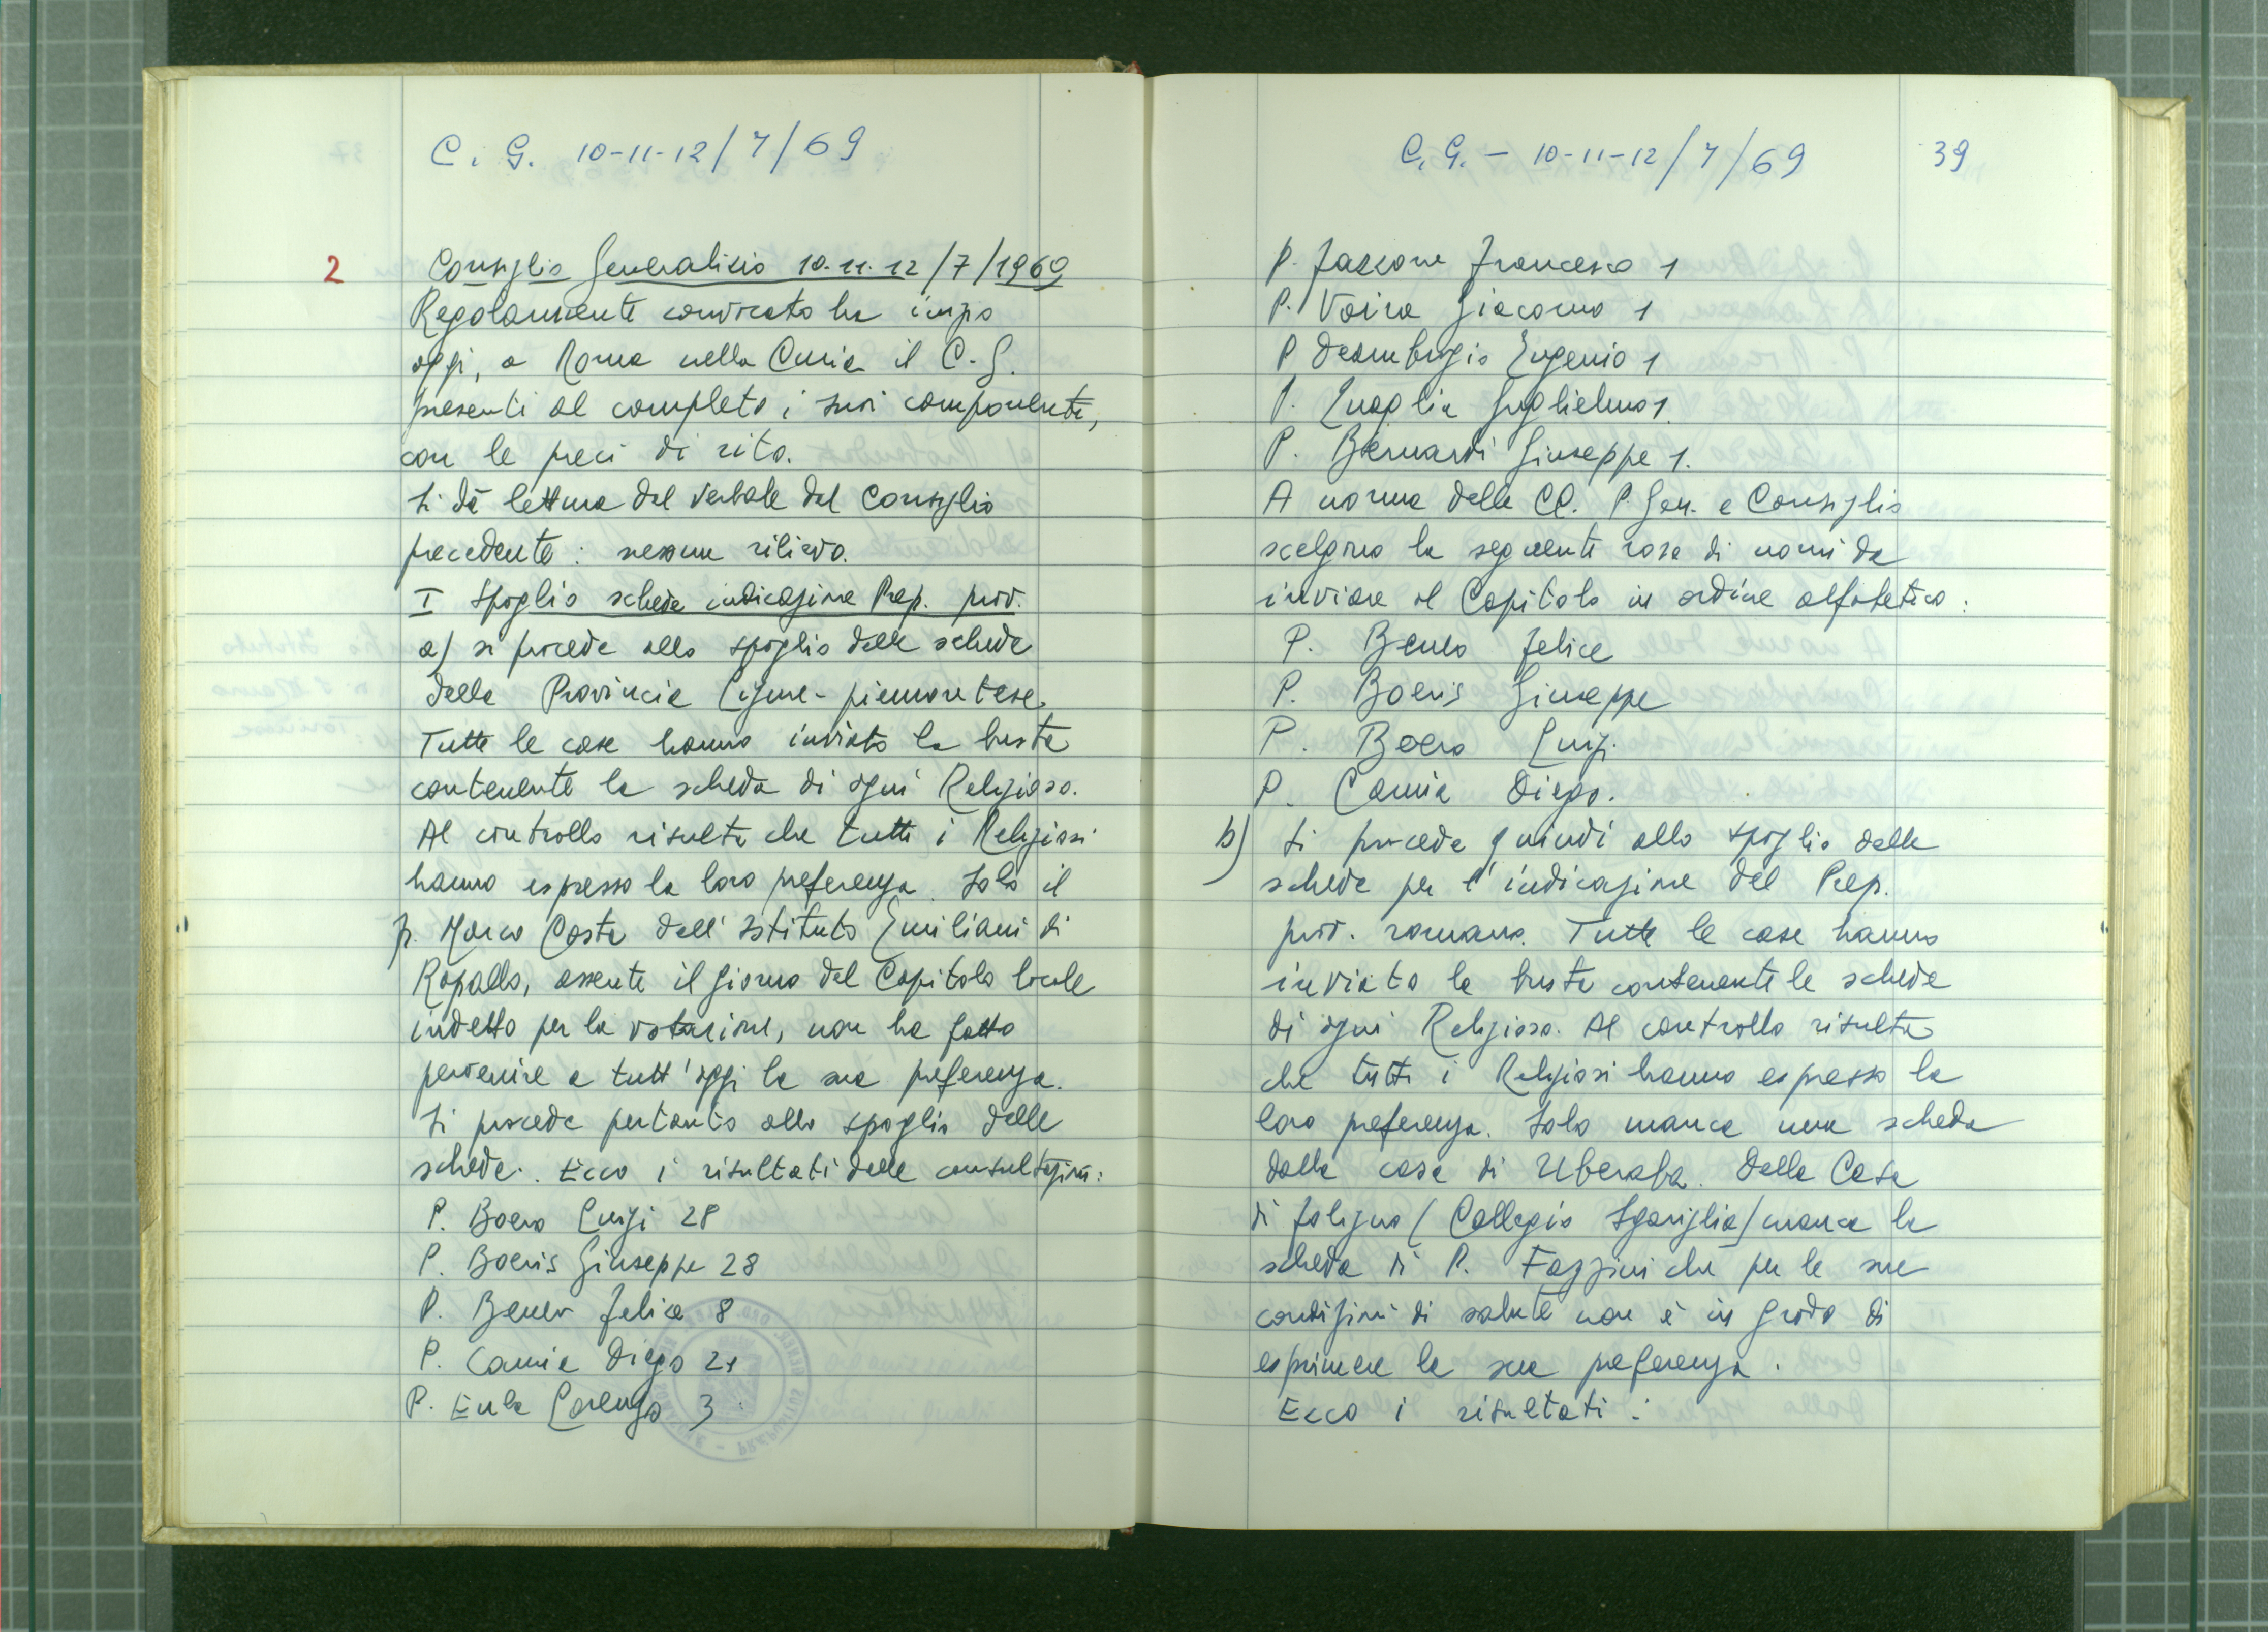 C. G. 10-11-12/7/69
2
Consiglio Generalizio 10.11.12/7/1969
Regolarmente convocato ha inizio
oggi, a Roma nella Curia il C. G.
presenti al completo i suoi componenti,
con le preci di rito.
Si dà lettura del verbale del Consiglio
precedente: nessun rilievo.
I Spoglio schede indicazione Prep. prov.
a) si procede allo spoglio delle schede
della Provincia Ligure-piemontese.
Tutte le case hanno inviato la busta
contenente la scheda di ogni Religioso.
Al controllo risulta che tutti i Religiosi
hanno espresso la loro preferenza. Solo il
p. Marco Costa dell'Istituto Emiliani di
Rapallo, assente il giorno del Capitolo locale
indetto per la votazione, non ha fatto
pervenire a tutt'oggi la sua preferenza.
Si procede pertanto allo spoglio delle
schede. Ecco i risultati delle consultazioni:
P. Boero Luigi 28
P. Boeris Giuseppe 28
P. Beneo Felice 8
P. Camia Diego 21
P. Eula Lorenzo 3
C. G. - 10-11-12/7/69
39
P. Fazzone Francesco 1
P. Vaira Giacomo 1
P. Deambrogio Eugenio 1
P. Quaglia Guglielmo 1.
P. Bernardi Giuseppe 1.
A norma delle CC. P. Gen. e Consiglio
scelgono la seguente rosa di nomi da
inviare al Capitolo in ordine alfabetico:
P. Beneo Felice
P. Boeris Giuseppe
P. Boero Luigi
P. Camia Diego.
b) Si procede quindi allo spoglio delle
schede per l'indicazione del Prep.
prov. romano. Tutte le case hanno
inviato la busta contenente le schede
di ogni Religioso. Al controllo risulta
che tutti i Religiosi hanno espresso la
loro preferenza. Solo manca una scheda
dalla casa di Uberaba. Della Casa
di Foligno (Collegio Sgariglia) manca la
scheda di P. Fazzini che per le sue
condizioni di salute non è in grado di
esprimere la sua preferenza.
Ecco i risultati: